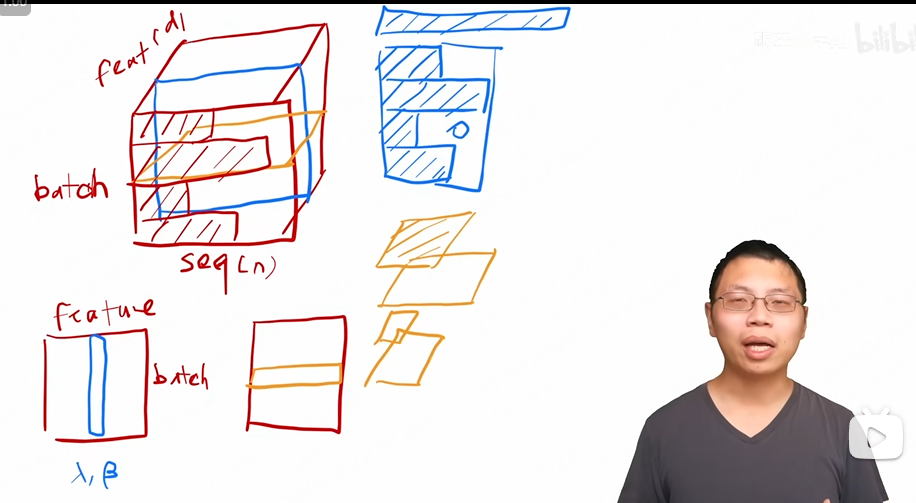 1:00
feat(d)
batch
seq(n)
feature
batch
λ, β
bilibili